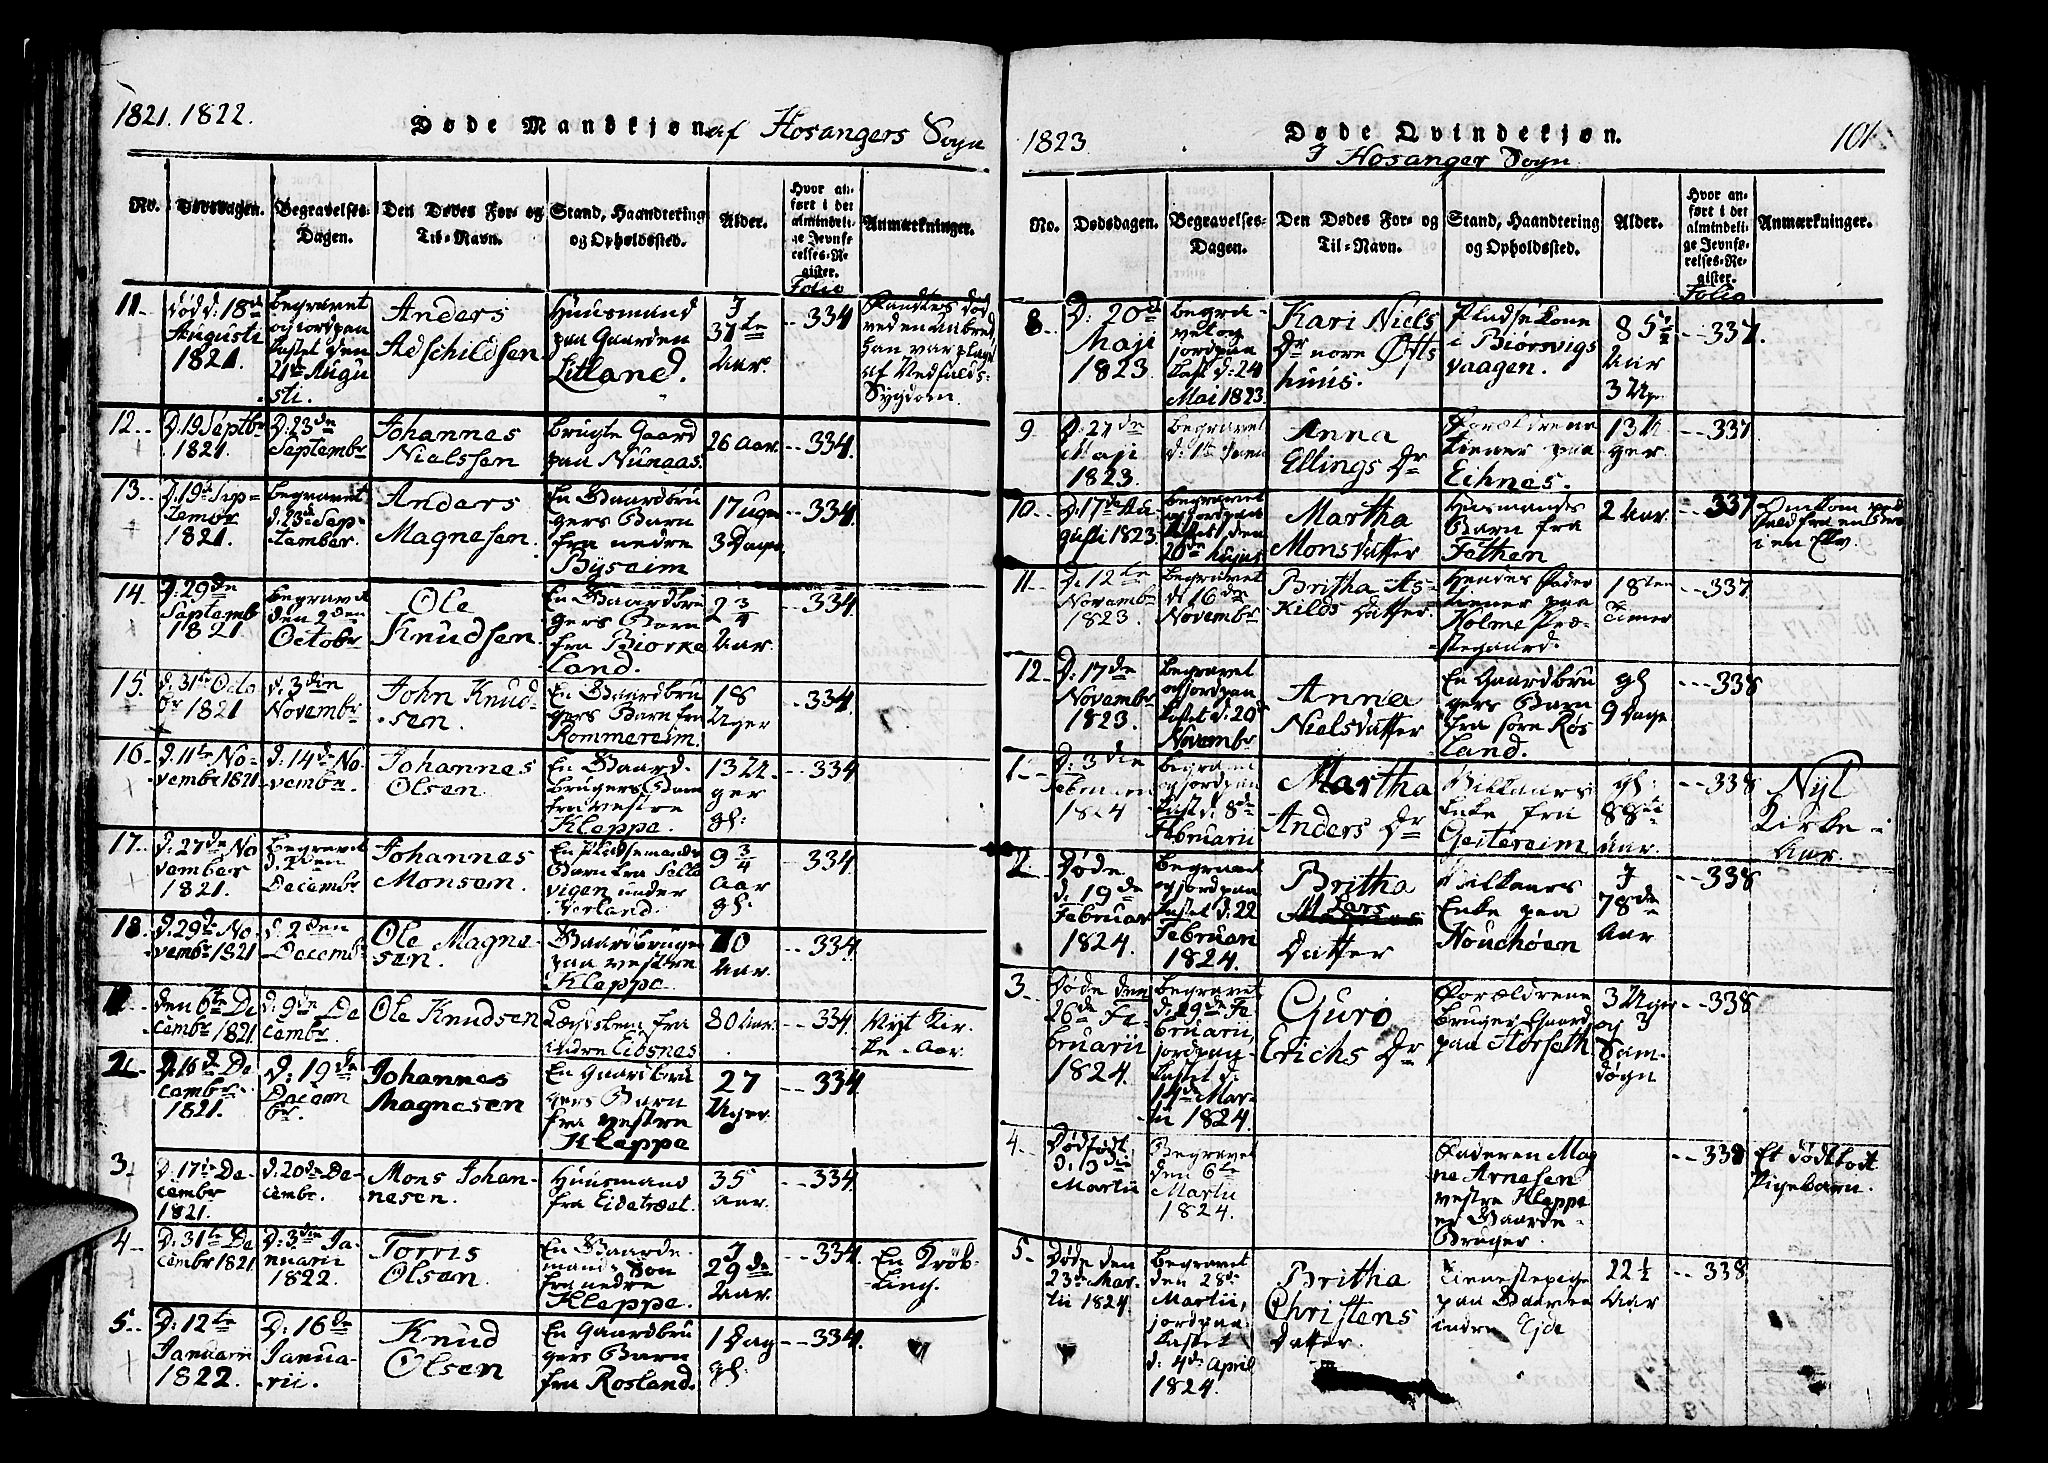 1821. 1822.
Døde Mandkjøn af Hosangers Sogn
No.
Dødsdagen.
Begravelses-
Dagen.
Den Dødes For- og
Til-Navn.
Stand, Haandtering
og Opholdssted.
Alder.
Hvor an-
ført i det
almindeli-
ge Jevnfø-
relses-Re-
gister.
Folio
Anmærkninger.
11.
død d: 18d
Augusti
1821.
begravet
og jordpaa
kastet den
21de Augu
sti.
Anders
Adschildsen
Huusmand
paa Gaarden
Litland.
I
37te
Aar.
334
fandtes død
ved en
han var plaget
af Vedfalds-
Sygdom.
12.
D. 19 Septbr
1821.
D: 23de
Septembr
Johannes
Nielssen
brugte Gaard
paa Nunaas.
26 Aar.
334.
13.
D. 19de Sep-
tember
1821.
begravet
d. 23d Sep-
tember.
Anders
Magnesen.
En Gaardbru
gers Barn
fra nedre
Byseim
17 uger
3 Dage
334.
14.
D. 29de
Septemb
1821.
begravet
den 2den
Octobr
Ole
Knudsen
En Gaardbru
gers Barn
fra Biorke
land.
2 3/4
Aar.
334
15.
d. 31te Octo
br 1821
d. 3die
Novembr
John Knud-
sen.
En Gaardbru
gers Barn fra
Rommereim.
18
Uger
334.
16.
d. 11te No-
vembr 1821
d: 14de No-
vembr.
Johannes
Olsen.
En Gaard-
brugers Barn
fra vestre
Kleppe.
13 U-
ger
gl:
334
17.
d. 27de No
vember
1821.
begravet
d. 2den
Decembr
Johannes
Monsen.
En Pladsemands
Barn fra
vigen under
Verland.
9 3/4
Aar
gl:
334.
18.
d. 29de No-
vembr 1821
d. 2den
Decembr
Ole Magne-
sen.
Gaardbruger
paa vestre
Kleppe.
70
Aar.
334.
den 6te De
cembr 1821
d. 9de De
cembr.
Ole Knudsen
fra
indre Eidsnes
80 Aar.
334.
Nyt Kir-
ke-Aar.
2.
D. 16de De
cembr
1821.
D: 19de
Decem
br.
Johannes
Magnesen
En Gaardbru
gers Barn
fra vestre
Kleppe
27
Uger.
334.
3.
D. 17de De-
cembr
1821.
d. 20de De-
cembr.
Mons Johan-
nesen.
Huusmand
fra Eidetræet.
35
Aar.
334.
4.
D: 31te De
cembr 1821
D: 3die Ja-
nuarii
1822.
Torris
Olsen
En Gaarde-
mands Søn
fra nedre
Kleppe.
I
29de
Aar.
334.
En Krøb-
ling.
5.
D: 12te
Januarii
1822.
D: 16de
Janua-
rii.
Knud
Olsen
En Gaardbru
gers Barn
fra Rosland.
1 Dag
gl:
334.
1823
Døde Qvindekjøn.
I Hosanger Sogn.
101
No.
Dødsdagen.
Begravelses-
Dagen.
Den Dødes For- og
Til-Navn.
Stand, Haandtering
og Opholdssted.
Alder.
Hvor an-
ført i det
almindeli-
ge Jevnfø-
relses-Re-
gister.
Folio
Anmærkninger.
8.
D: 20de
Maji
1823.
begra-
vet og
jordpaa
kast d: 24
Mai 1823.
Kari Niels
Dr nore Øfts
huus.
Pladsekone
i Biørsvigs
vaagen.
85 1/2
Aar
334
337.
9.
D: 27de
Maji
1823.
begravet
d: 1te Junii
Anna
Ellings Dr
Forældrene
tiener paa
Eihnes.
13 U-
ger.
337
10.
D: 17de Au-
gusti 1823
begravet
og jordpaa
kastet den
20de hujus
Martha
Monsdatter
Huusmands
Barn fra
Fothen
2 Aar.
337
Omkom ved
fald fra en
i en Elv.
11.
D. 12te
Novemb
1823.
begravet
d: 16de
Novembr
Britha As-
kilds Datter
Hendes Fader
tiener paa
Holme Præ-
stegaard.
18ten
Timer
337
12.
D: 17de
Novembr
1823.
begravet
og jordpaa
kastet d: 20d
Novembr
Anna
Nielsdatter
En Gaardbru
gers Barn
fra søre Røs
land.
gl
9 Dage
338
1.
D: 3die
Februarii
1824
begravet
og jordpaa
kast d: 8de
Februarii
Martha
Anders Dr
Vilkaars
Enke fra
Geitereim
gl:
88te
Aar.
338
Nyt
Kirke-
Aar.
2.
Døde
d. 19de
Februar
1824.
begravet
og jordpaa
kastet d: 22
Februari
1824.
Britha
Lars
Datter
Vilkaars
Enke paa
Nouchøen
I
78de
Aar
338
3.
Døde den
26de Fe-
bruarii
1824.
begravet
d. 29de Fe-
bruarii,
jordpaa-
kastet d:
14de Mar-
tii 1824.
Guro
Erichs Dr
Forældrene
bruger Gaard
paa Horseth
3 Uger
og 3
Sam-
døgn
338
4.
Dødfødt
d. 3die
Martii
Begravet
den 6te
Martii
1824.
Faderen Mag
ne Arnesen
vestre Kleppe
er Gaard-
Bruger.
338
Et dødfødt
Pigebarn.
5.
Døde den
23de Mar-
tii 1824.
begravet
den 28de
Martii,
jordpaa-
kastet
d: 4de April
1824.
Britha
Christens
Datter.
Tienestepige
paa Gaarden
indre Ejde
22 1/2
Aar
338